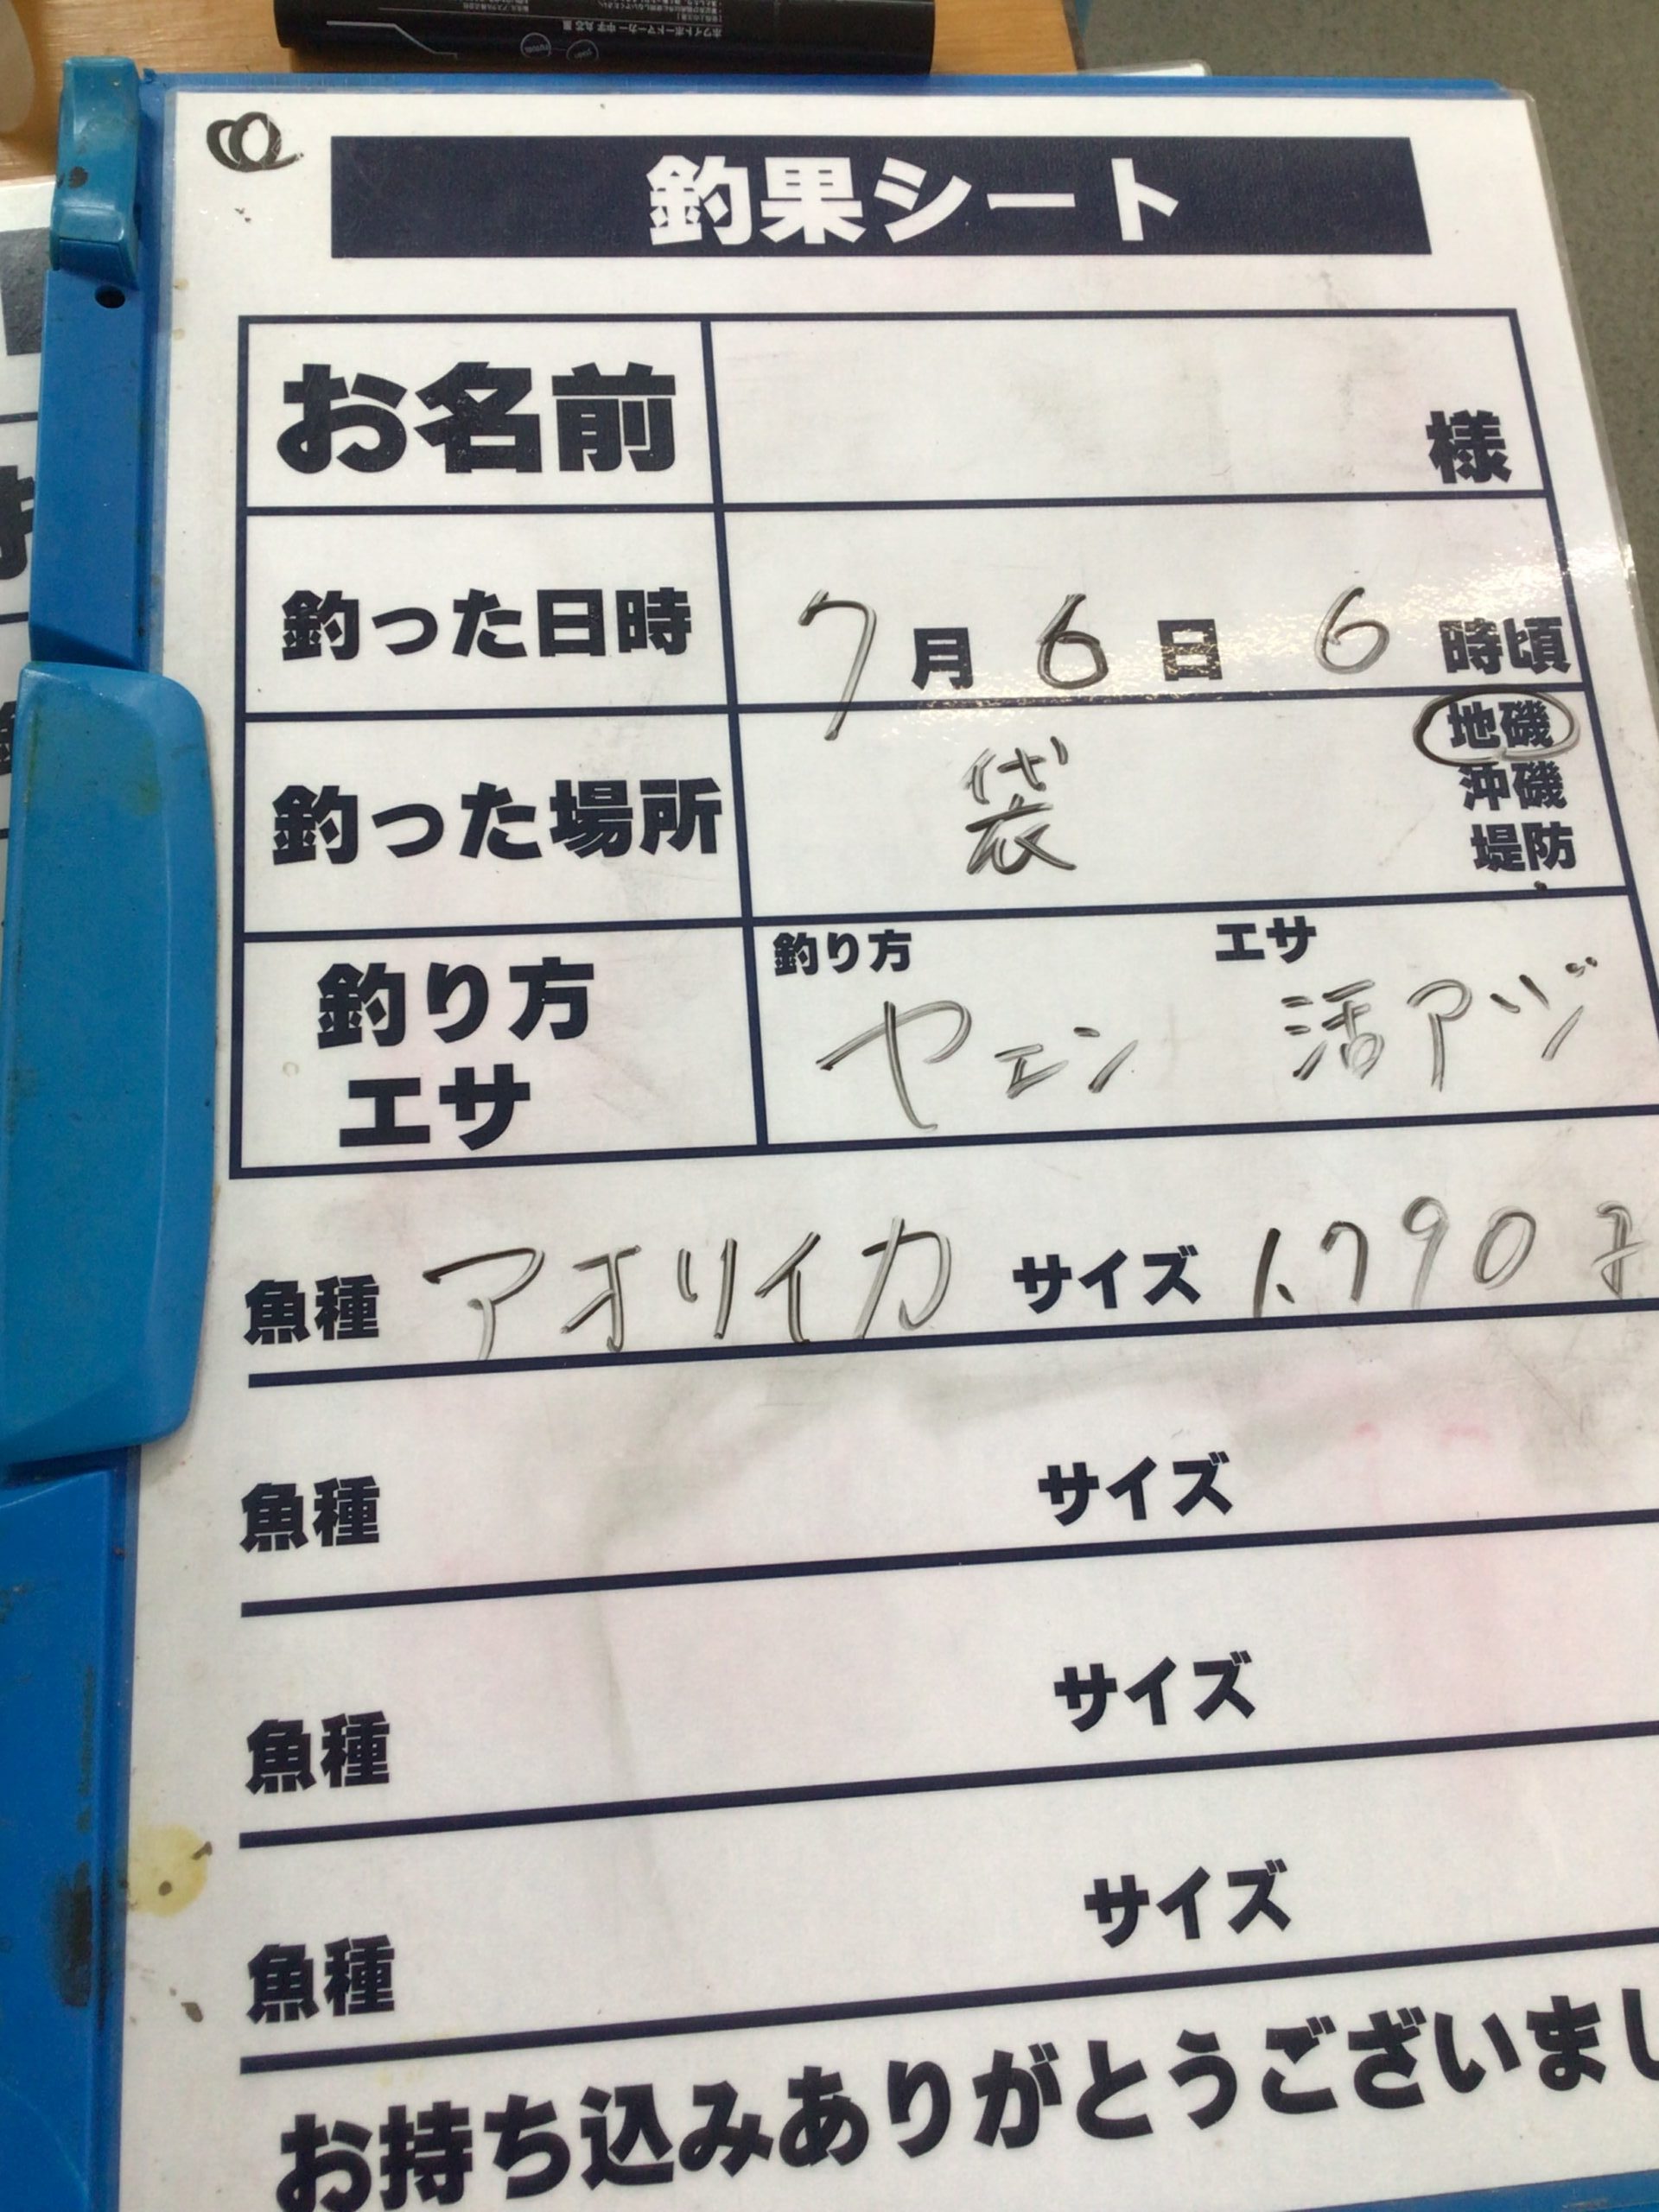 釣果シート
お名前 様
釣った日時 7月6日 6時頃
釣った場所 袋 地磯
沖磯
堤防
釣り方 エサ
釣り方
エサ
ヤエン 活アジ
魚種 アオリイカ サイズ 1.790
魚種 サイズ
魚種 サイズ
魚種 サイズ
お持ち込みありがとうございまし